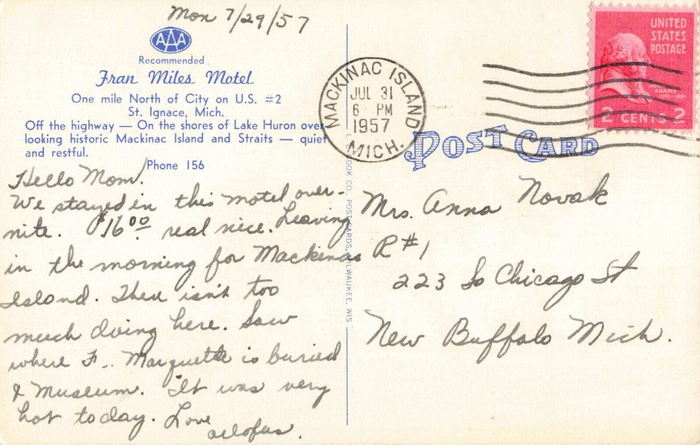 Mon 7/29/57
AAA
Recommended
Fran Miles Motel
One mile North of City on U.S. #2
St. Ignace, Mich.
Off the highway — On the shores of Lake Huron over
looking historic Mackinac Island and Straits — quiet
and restful.
Phone 156
Hello Mom.
We stayed in this motel over-
nite. $16.00 real nice. Leaving
in the morning for Mackinac
Island. There isn't too
much doing here. Saw
where F. Marquette is buried
& Museum. It was very
hot today. Love
MACKINAC ISLAND
JUL 31
6 PM
1957
MICH.
UNITED
STATES
POSTAGE
2 CENTS 2
POST CARD
Mrs. Anna Novak
R#1
223 So Chicago St
New Buffalo Mich.